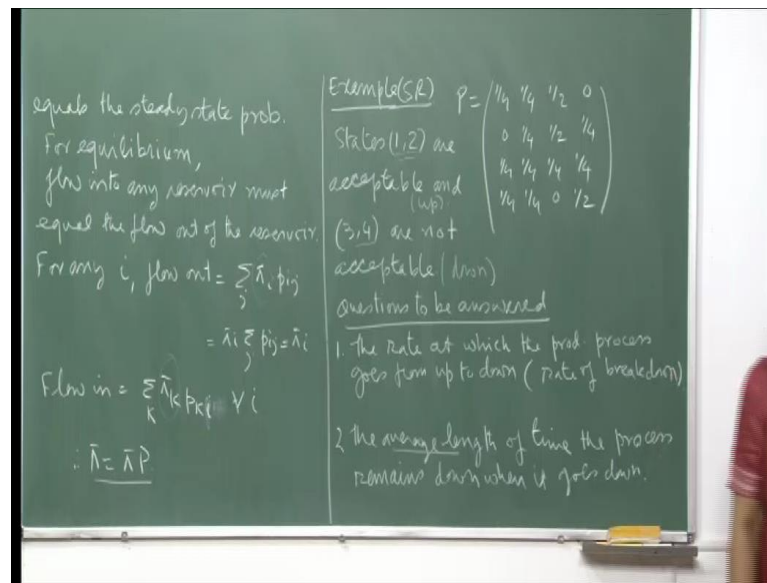 equals the steady state prob.
For equilibrium,
flow into any reservoir must
equal the flow out of the reservoir.
For any i, flow out = Σ_j π̄_i p_ij
= π̄_i Σ_j p_ij = π̄_i
Flow in = Σ_K π̄_K p_Ki ∀ i
∴ π̄ = π̄ P
Example(SR)
P = ( 1/4 1/4 1/2 0
0 1/4 1/2 1/4
1/4 1/4 1/4 1/4
1/4 1/4 0 1/2 )
States (1,2) are
acceptable and
(up)
(3,4) are not
acceptable (down)
Questions to be answered
1. the rate at which the prod. process
goes from up to down (rate of breakdown)
2. the average length of time the process
remains down when it goes down.